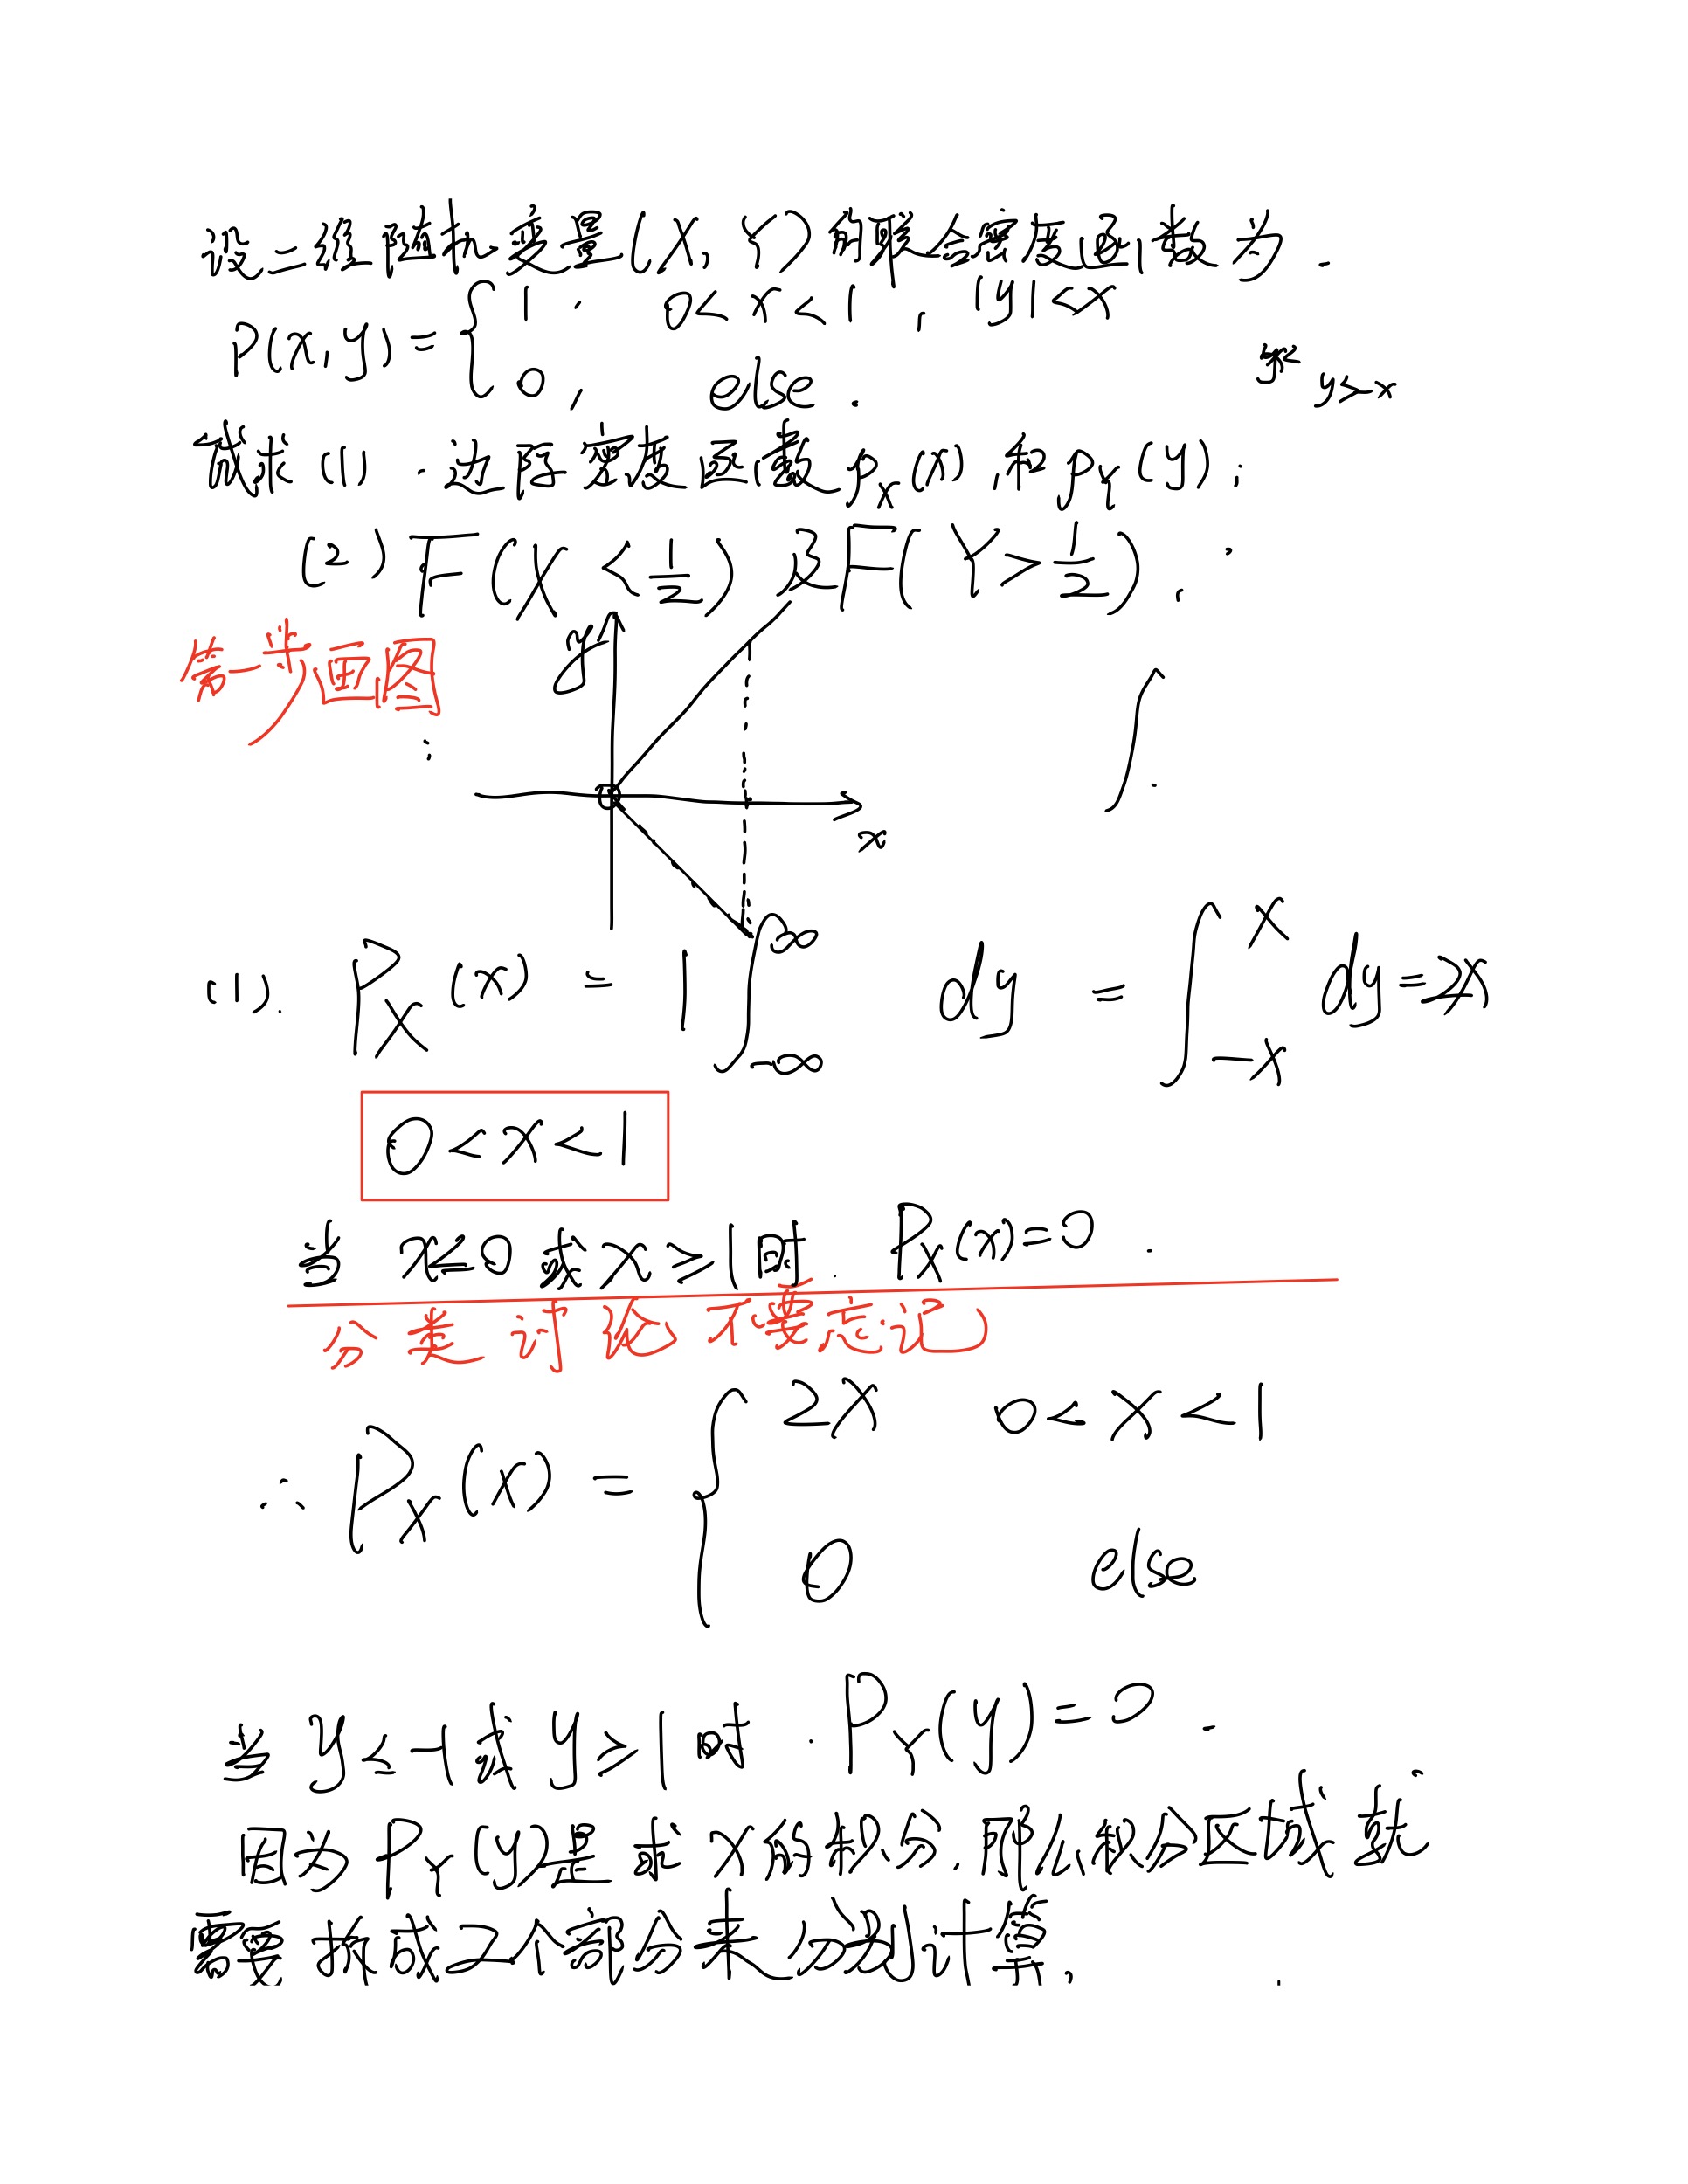 设二维随机变量(X,Y)的联合密度函数为.
P(x,y)={1, 0<x<1, |y|<x
0, else.
y>-x
试求(1).边际密度函数p_X(x)和p_Y(y);
(2)F(X<1/2)及F(Y>1/2).
第一步画图
:
y
0
x
∫
(1). P_X(x) = 1∫_{-∞}^{∞} dy = ∫_{-x}^{x} dy=2x
0<x<1
当 x≤0或x≥1时. P_X(x)=0.
分类讨论不要忘记
∴ P_X(x) = {2x 0<x<1
0 else
当 y≤-1或 y≥1时. P_Y(y)=0.
因为 P_Y(y)是求X的积分,那么积分区域就
需要拆成2个部分来分别计算.